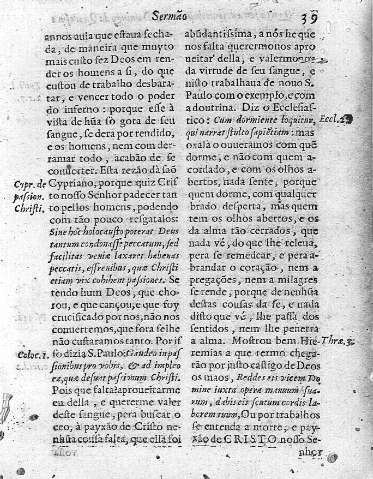 Sermão
39
annos auia que estaua fecha-
da, de maneira que muyto
mais custo fez Deos em ren-
der os homens a si, do que
custou de trabalho desbara-
tar, e vencer todo o poder
do inferno: porque esse à
vista de hũa só gota de seu
sangue, se dera por rendido,
e os homens, nem com der-
ramar todo, acabão de se
conuerter. Esta rezão dá são
Cypriano, porque quiz Cris-
to nosso Senhor padecer tan-
to pellos homens, podendo
com tão pouco resgatalos:
Sine hoc holocausto poterat Deus
tantum condonasse peccatum, sed
facilitas veniæ laxaret habenas
peccatis, effrenibus, quæ Christi
etiam vix cohibent passiones. Se
tendo hum Deos, que cho-
rou, e que cançou, e que foy
crucificado por nos, não nos
conuertemos, que fora se lhe
não custaramos tanto. Por is-
so dizia S. Paulo: Gaudeo in pas-
sionibus pro vobis, & ad impleo
ea, quæ desunt passionum Christi.
Pois que falta? aproueitarme
eu della, e quererme valer
deste sangue, pera buscar o
ceo, à payxão de Cristo ne-
nhũa cousa falta, que ella foi
Cypr. de
passion.
Christi.
Coloc. 1.
abũdantissima, a nós he que
nos falta querermonos apro-
ueitar della, e valermonos
da virtude de seu sangue, e
nisto trabalhaua de nouo S.
Paulo com o exemplo, e com
a doutrina. Diz o Ecclesias-
tico: Cum dormiente loquitur,
qui narrat stulto sapiẽtiam: mas
oxalá o ouueramos com quẽ
dorme, e não com quem a-
cordado, e com os olhos a-
bertos, nada sente, porque
quem dorme, com qualquer
brado desperta, mas quem
tem os olhos abertos, e os
da alma tão cerrados, que
nada vé, do que lhe releua,
pera se remedear, e pera a-
brandar o coração, nem a
pregações, nem a milagres
se rende, porque de nenhũa
destas cousas da fe, e nada
disto que vé, lhe passa dos
sentidos, nem lhe penetra
a alma. Mostrou bem Hie-
remias a que termo chega-
rão por justo castigo de Deos
os maos, Reddes eis vicem Do-
mine iuxta opera manuum sua-
rum, dabis eis scutum cordis la-
borem tuum, Ou por trabalhos
se entenda a morte, e pay-
xão de CRISTO nosso Se-
nhor
Eccl. 22
Thre. 3.